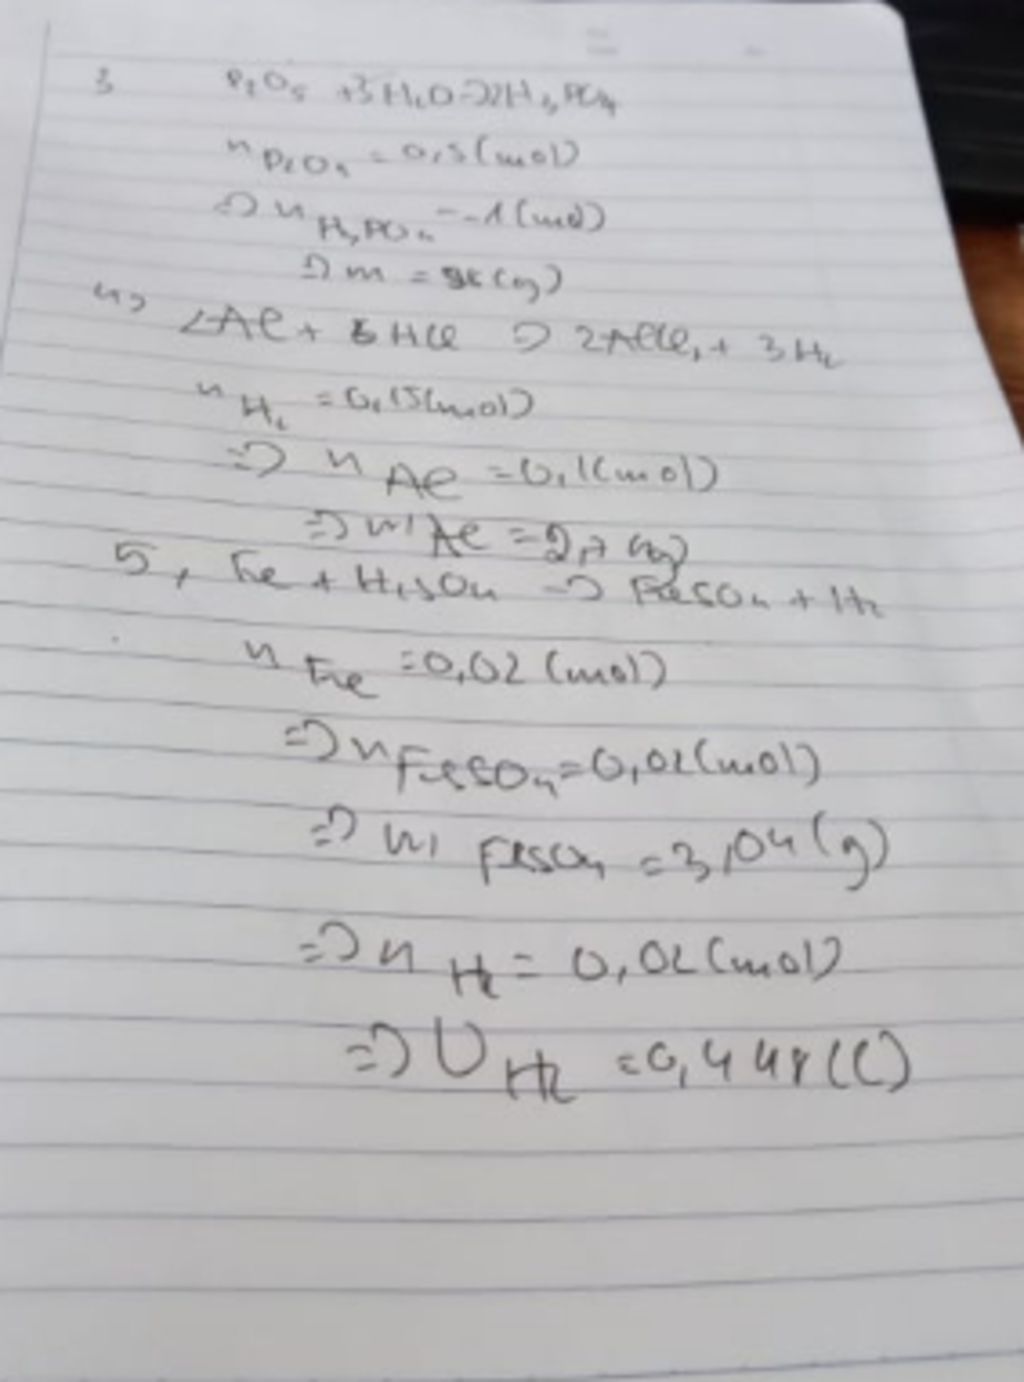 3 P₂O₅ + 3H₂O → 2H₃PO₄
n P₂O₅ = 0,5 (mol)
⇒ n H₃PO₄ = 1 (mol)
⇒ m = 98 (g)
4, 2Al + 6HCl → 2AlCl₃ + 3H₂
n H₂ = 0,15 (mol)
⇒ n Al = 0,1 (mol)
⇒ m Al = 2,7 (g)
5, Fe + H₂SO₄ → FeSO₄ + H₂
n Fe = 0,02 (mol)
⇒ n FeSO₄ = 0,02 (mol)
⇒ m FeSO₄ = 3,04 (g)
⇒ n H₂ = 0,02 (mol)
⇒ V H₂ = 0,448 (l)